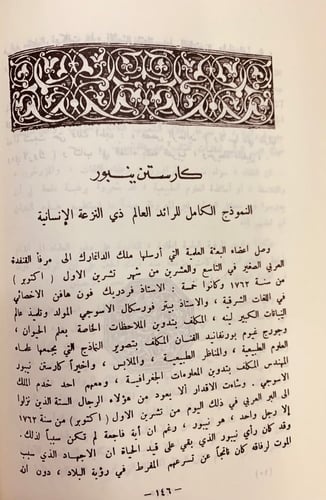 كارستن نيبور
النموذج الكامل للرائد العالم ذي النزعة الإنسانية
وصل اعضاء البعثة العلمية التي أرسلها ملك الدانمارك الى مرفأ القنفدة
العربي الصغير في التاسع والعشرين من شهر تشرين الاول ( اكتوبر )
من سنة ١٧٦٢ وكانوا خمسة : الاستاذ فردريك فون هافن الاخصائي
في اللغات الشرقية ، والاستاذ بيتر فورسكال الاسوجي المولد وتلميذ عالم
النباتات الكبير لنه ، المكلف بتدوين الملاحظات الخاصة بعلم الحيوان ،
وجورج غيوم بورنفايند الفنان المكلف بتصوير النماذج التي يجمعها علماء
العلوم الطبيعية ، والمناظر الطبيعية ، والملابس ، واخيراً كارستن نيبور
المهندس المكلف بتدوين المعلومات الجغرافية ، ومعهم احد خدم الملك
الاسوجي . وشاءت الاقدار ألا يعود من هؤلاء الرجال الستة الذين نزلوا
الى البر العربي في ذلك اليوم من تشرين الاول ( اكتوبر ) من سنة ١٧٦٢
إلا رجل واحد ، هو نيبور ، رغم ان أية فاجعة لم تكن سبباً لذلك .
وقد كان رأي نيبور الذي بقي على قيد الحياة ان الاجهاد الذي سبب
الموت لرفاقه كان ناتجاً عن تسرعهم المفرط في رؤية البلاد ، دون أن
– ١٤٦ –